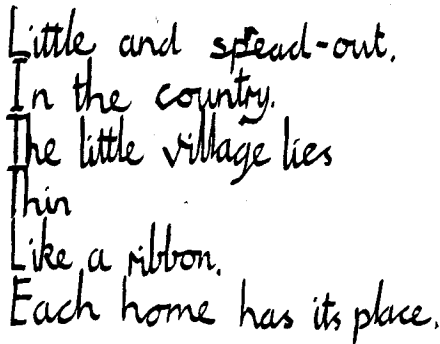 Little and spread-out.
In the country.
The little village lies
Thin
Like a ribbon.
Each home has its place.